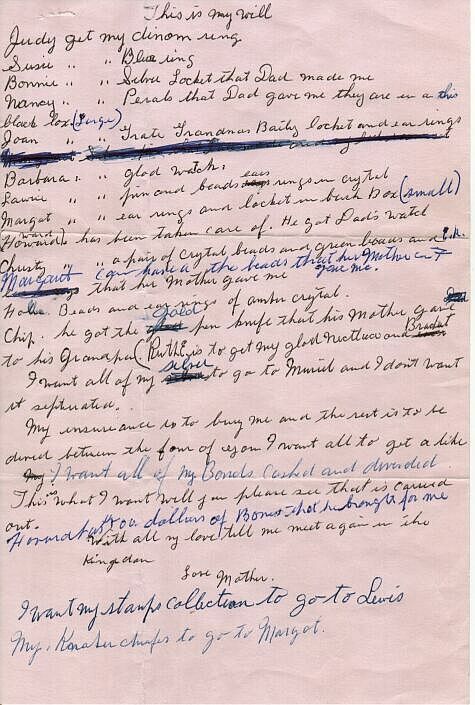 This is my will
Judy get my dinom ring
Susie " " Blue ring
Bonnie " " Silver Locket that Dad made me
Nancy " " Perals that Dad gave me they are in a this
black box (Large)
Joan " " Grate Grandmas Baily locket and ear rings
Barbara " " glod watch.
Laurie " " pin and beads ears rings in crytal
Margat " " ear rings and locket in back Box (small)
Howard has been taken care of. He got Dad's watch
Christy " a pair of crytal beads and green beads and E.R.
Margaret can have all the beads that her Mother
that her Mother gave me gave me.
Beads and ear rings of amber crytal.
Chip. he got the gold pen knife that his Mother gave
to his Grandpa. Ruth is to get my glod necklace and
I want all of my silver to go to Muriel and I don't want
it septurated.
My insureance is to bury me and the rest is to be
dived between the four of you I want all to get a like
I want all of my Bonds cashed and divided.
This what I want will you please see that is carried
out.
Howard has dollars of Bonds that he brought for me
With all my love till me meet again in the
Kingdon
Love Mother.
I want my stamps collection to go to Lewis
My chiefs to go to Margot.